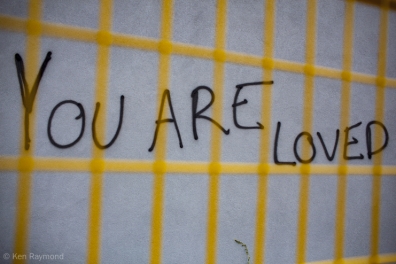 YOU ARE LOVED
© Ken Raymond